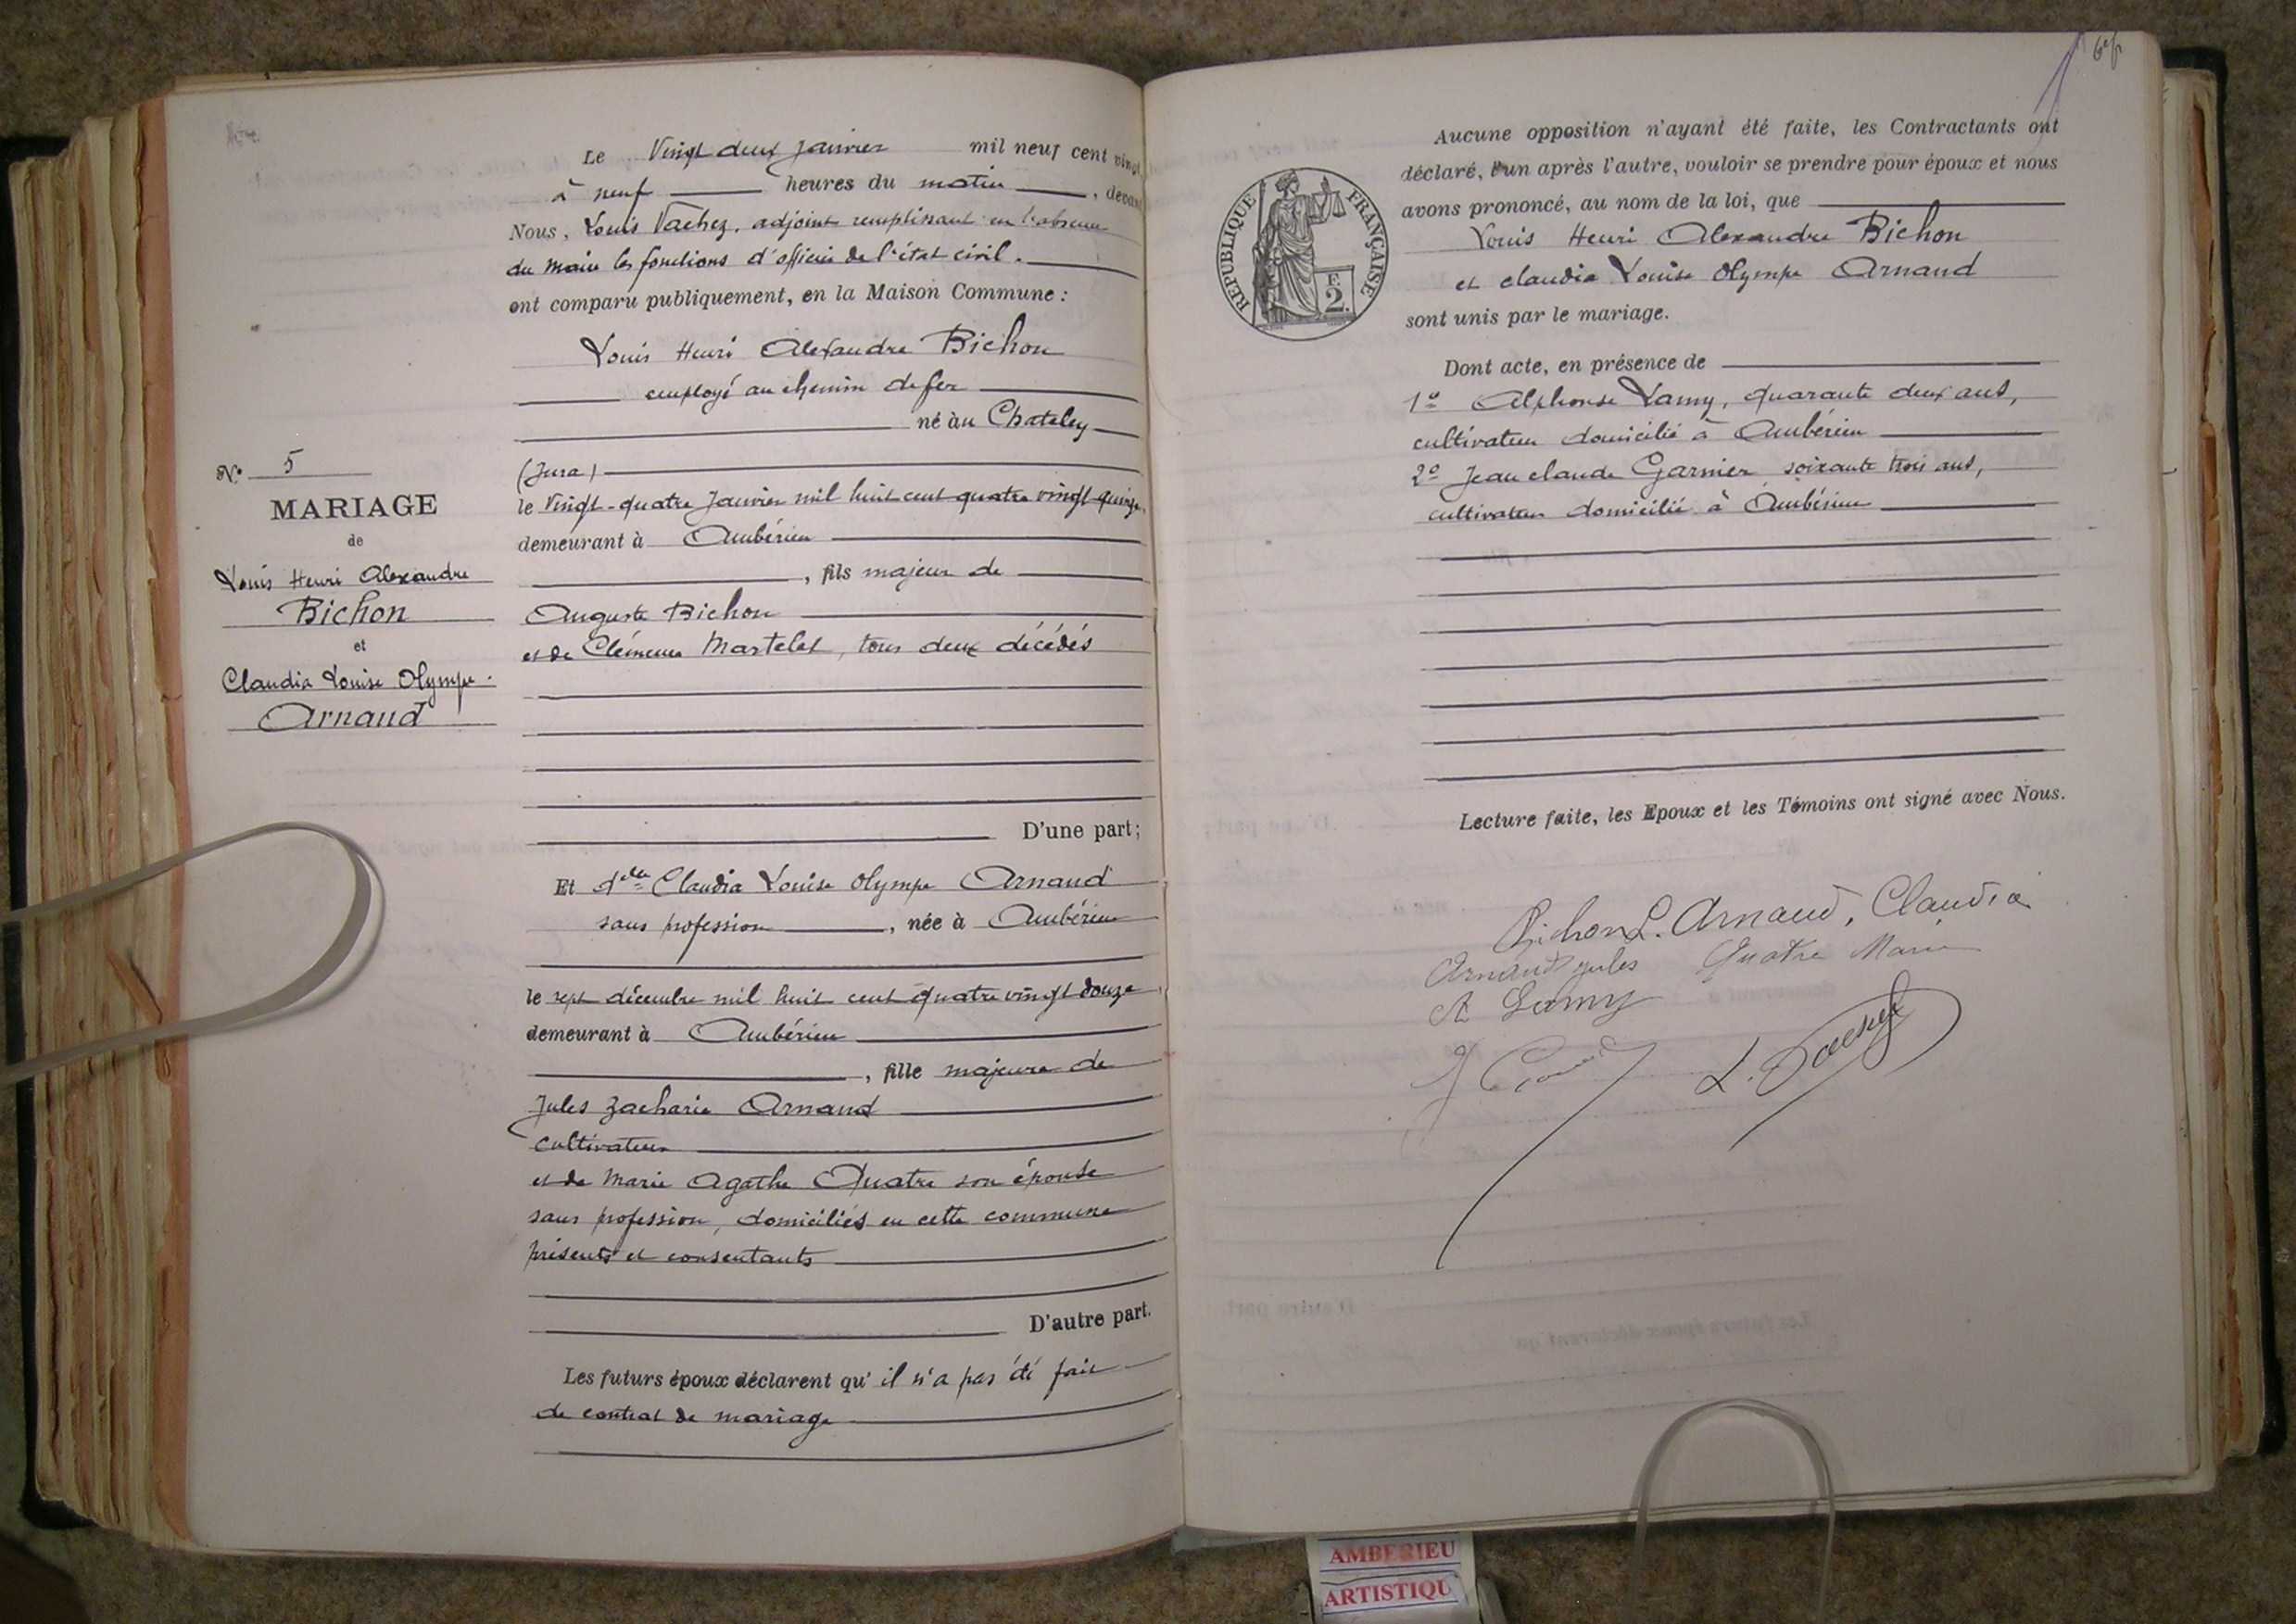 Le Vingt deux Janvier mil neuf cent vingt
à neuf heures du matin, devant
Nous, Louis Vachez, adjoint remplissant en l'absence
du Maire les fonctions d'officier de l'état civil.
ont comparu publiquement, en la Maison Commune :
Louis Henri Alexandre Bichon
employé au chemin de fer
né au Chateley
(Jura)
le Vingt-quatre Janvier mil huit cent quatre vingt quinze
demeurant à Ambérieu
, fils majeur de
Auguste Bichon
et de Clémence Martelet, tous deux décédés
D'une part;
Et delle Claudia Louise Olympe Arnaud
sans profession, née à Ambérieu
le sept décembre mil huit cent quatre vingt douze
demeurant à Ambérieu
, fille majeure de
Jules Zacharie Arnaud
cultivateur
et de Marie Agathe Quatre son épouse
sans profession, domiciliés en cette commune
présents et consentants
D'autre part.
Les futurs époux déclarent qu'il n'a pas été fait
de contrat de mariage
N° 5
MARIAGE
de
Louis Henri Alexandre
Bichon
et
Claudia Louise Olympe
Arnaud
Aucune opposition n'ayant été faite, les Contractants ont
déclaré, l'un après l'autre, vouloir se prendre pour époux et nous
avons prononcé, au nom de la loi, que
Louis Henri Alexandre Bichon
et Claudia Louise Olympe Arnaud
sont unis par le mariage.
RÉPUBLIQUE FRANÇAISE
F.
2.
Dont acte, en présence de
1° Alphonse Lamy, quarante deux ans,
cultivateur domicilié à Ambérieu
2° Jean Claude Garnier soixante trois ans,
cultivateur domicilié à Ambérieu
Lecture faite, les Epoux et les Témoins ont signé avec Nous.
Bichon L. Arnaud, Claudia
Arnaud Jules Quatre Marie
A Lamy
L. Vachez
AMBERIEU
ARTISTIQU